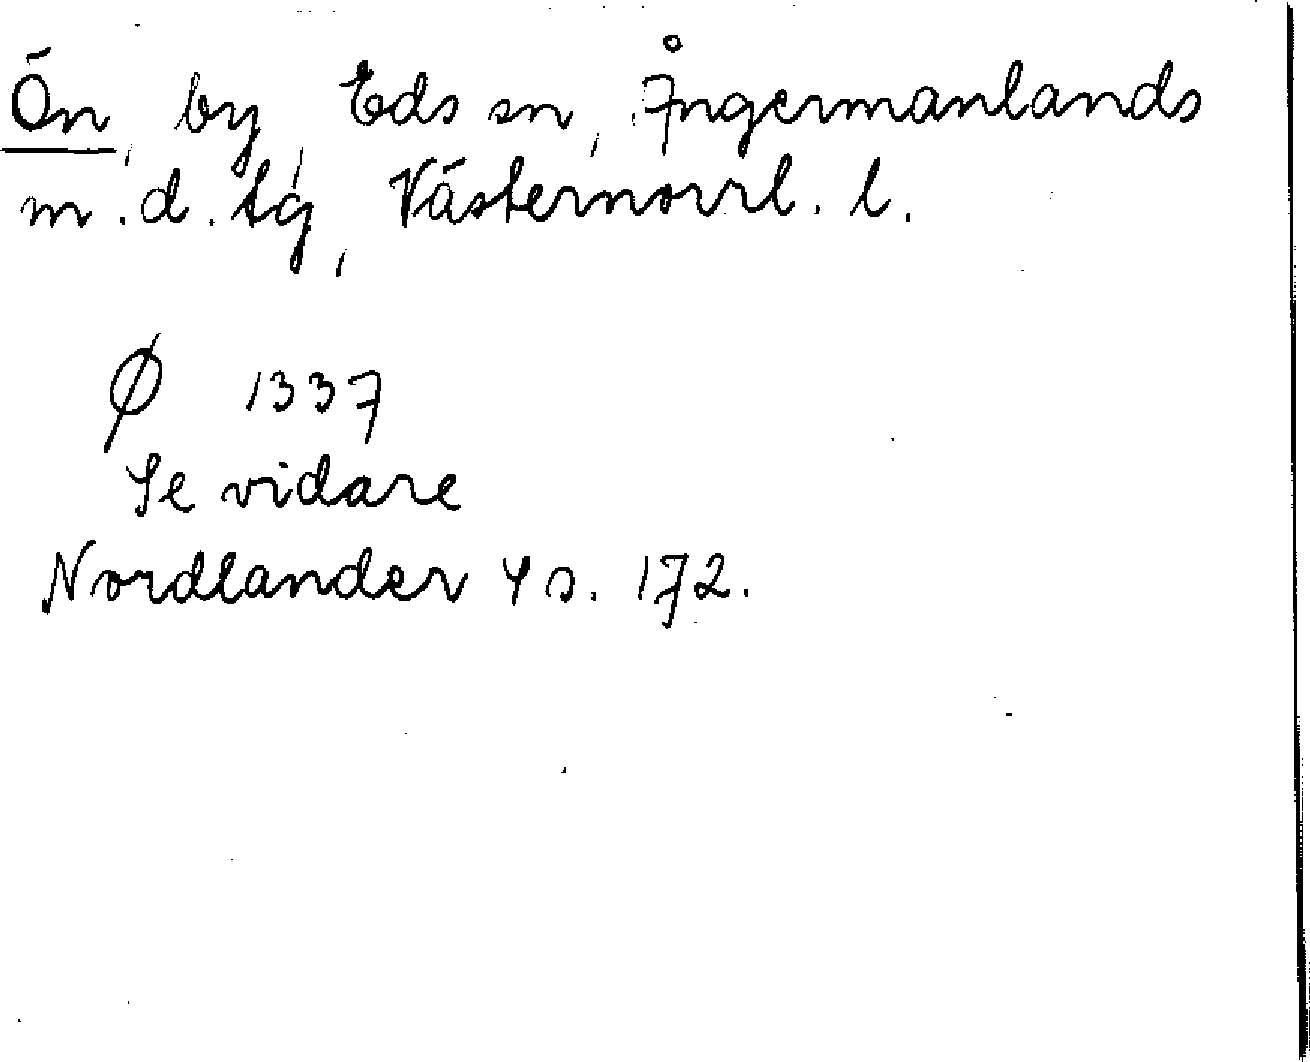 Ön, by, Eds sn, Ångermanlands
m.d. tg, Västernorrl. l.
Ø 1337
Se vidare
Nordlander 4 s. 172.